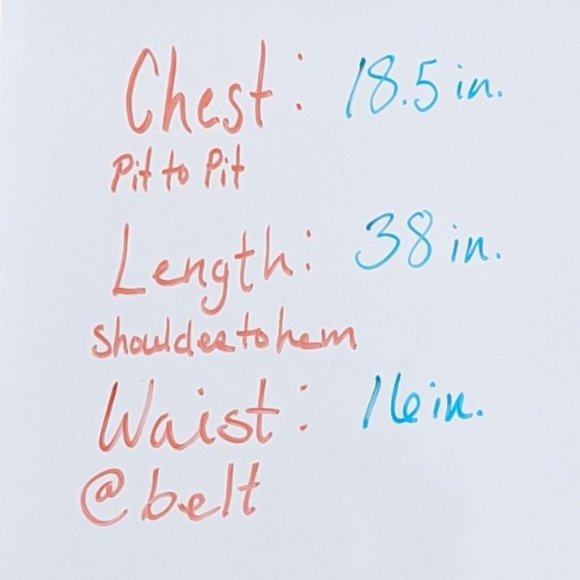 Chest: 18.5 in.
Pit to Pit
Length: 38 in.
Shoulder to hem
Waist: 16 in.
@ belt